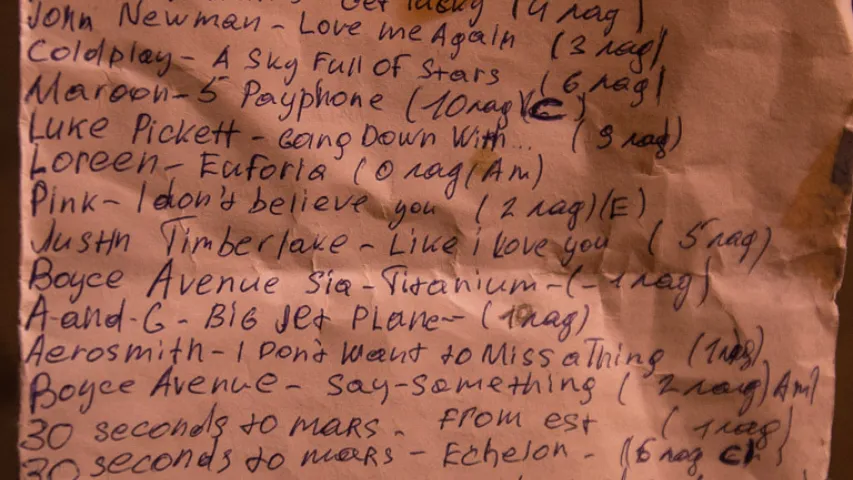 Get Lucky (4 лад)
John Newman - Love me Again (3 лад)
Coldplay - A Sky Full Of Stars (6 лад)
Maroon-5 Payphone (10 лад) (C)
Luke Pickett - Going Down With... (9 лад)
Loreen - Euforia (0 лад) (Am)
Pink - I don's believe you (2 лад) (E)
Justin Timberlake - Like i Love you (5 лад)
Boyce Avenue Sia - Titanium - (-1 лад)
A-and-G - BIG Jet PLane - (10 лад)
Aerosmith - I Don't Want to Miss a Thing (1 лад)
Boyce Avenue - Say-Something (2 лад) Am)
30 seconds to mars - From est (1 лад)
30 seconds to mars - Echelon - (6 лад